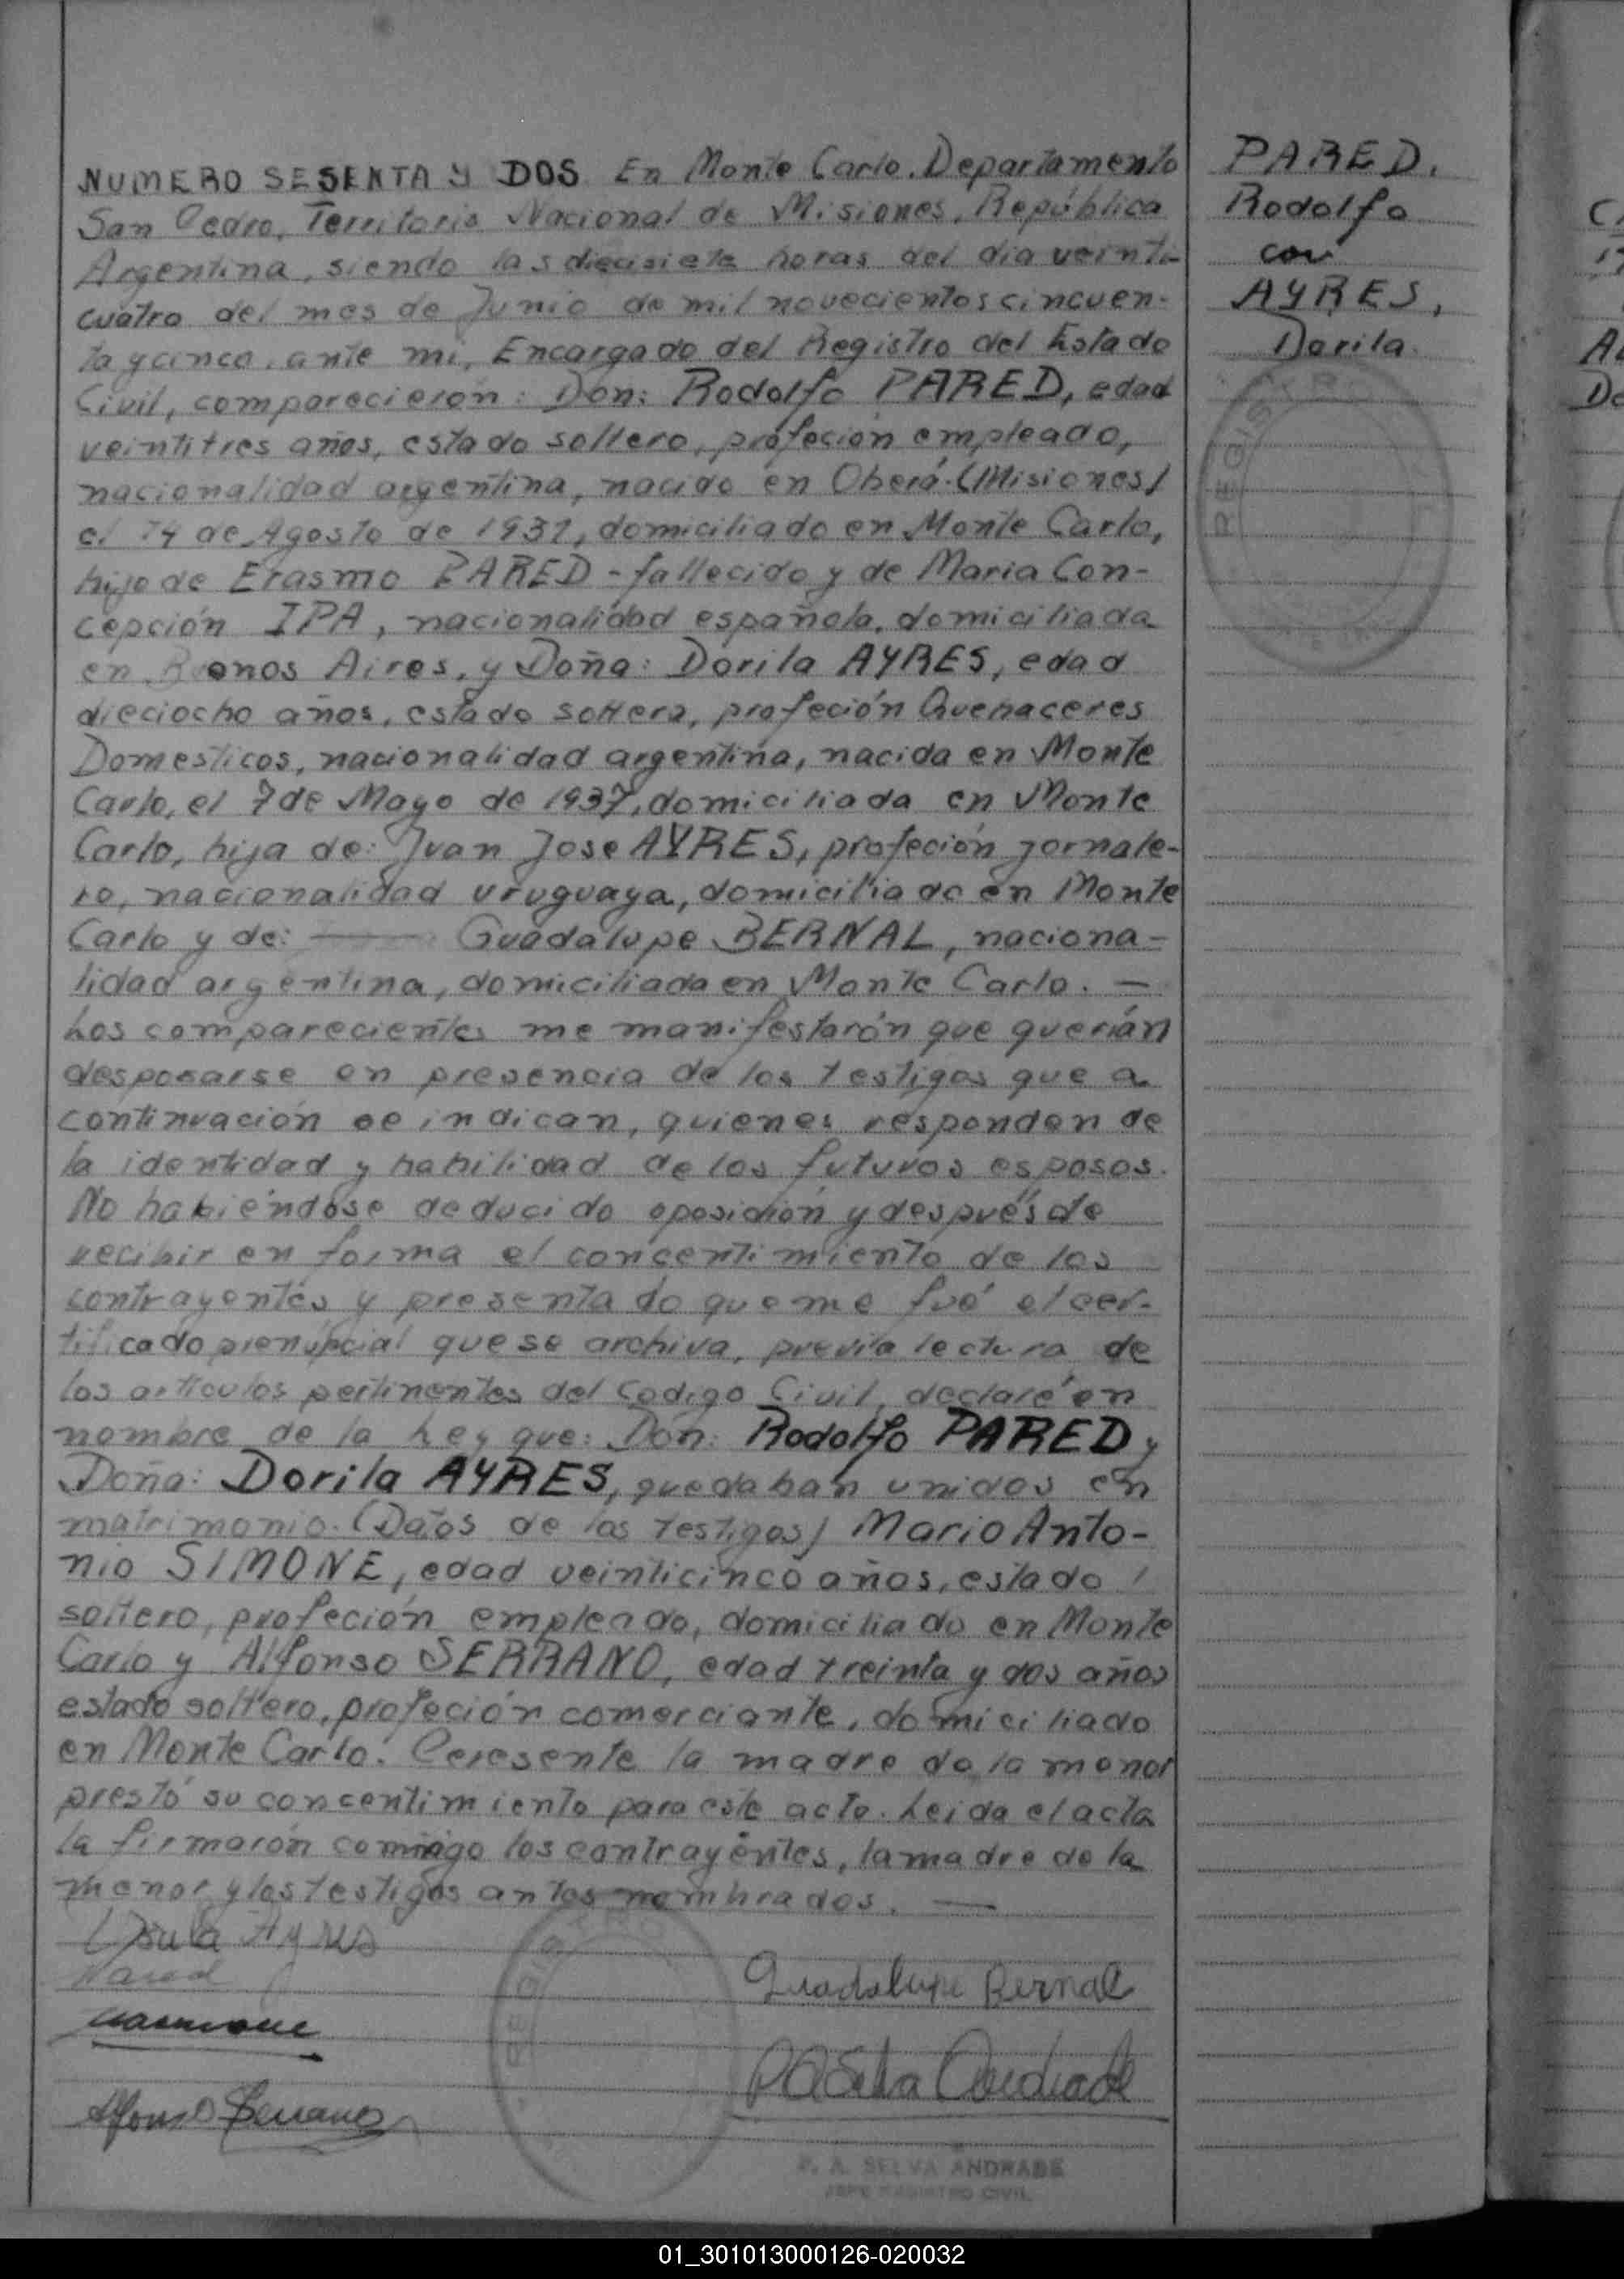 NUMERO SESENTA Y DOS. En Monte Carlo. Departamento
San Pedro, Territorio Nacional de Misiones, República
Argentina, siendo las diecisiete horas del dia veinti-
cuatro del mes de Junio de mil novecientos cincuen-
ta y cinco, ante mi, Encargado del Registro del Estado
Civil, comparecierón: Don: Rodolfo PARED, edad
veintitres años, estado soltero, profeción empleado,
nacionalidad argentina, nacido en Oberá (Misiones)
el 14 de Agosto de 1931, domiciliado en Monte Carlo,
hijo de Erasmo PARED - fallecido y de Maria Con-
cepción IPA, nacionalidad española, domiciliada
en Buenos Aires, y Doña: Dorila AYRES, edad
dieciocho años, estado soltera, profeción Quehaceres
Domesticos, nacionalidad argentina, nacida en Monte
Carlo, el 7 de Mayo de 1937, domiciliada en Monte
Carlo, hija de: Juan Jose AYRES, profeción jornale-
ro, nacionalidad uruguaya, domiciliado en Monte
Carlo y de: —— Guadalupe BERNAL, naciona-
lidad argentina, domiciliada en Monte Carlo. —
Los comparecientes me manifestarón que querián
desposarse en presencia de los testigos que a
continuación se indican, quienes responden de
la identidad y habilidad de los futuros esposos.
No habiéndose deducido oposición y después de
recibir en forma el concentimiento de los
contrayentes y presentado que me fué el cer-
tificado prenupcial que se archiva, previa lectura de
los articulos pertinentes del Codigo Civil, declaré en
nombre de la Ley que: Don: Rodolfo PARED y
Doña: Dorila AYRES, quedaban unidos en
matrimonio. (Datos de los testigos) Mario Anto-
nio SIMONE, edad veinticinco años, estado
soltero, profeción empleado, domiciliado en Monte
Carlo y Alfonso SERRANO, edad treinta y dos años
estado soltero, profeción comerciante, domiciliado
en Monte Carlo. Peresente la madre de la menor
prestó su concentimiento para este acto. Leida el acta
la firmarón comigo los contrayéntes, la madre de la
menor y los testigos antes nombrados. —
Ayres
Pared
Guadalupe Bernal
Alfonso Serrano
P A Selva Andrade
P. A. SELVA ANDRADE
JEFE REGISTRO CIVIL
REGISTRO
PARED,
Rodolfo
con
AYRES,
Dorila.
REGISTRO
01_301013000126-020032